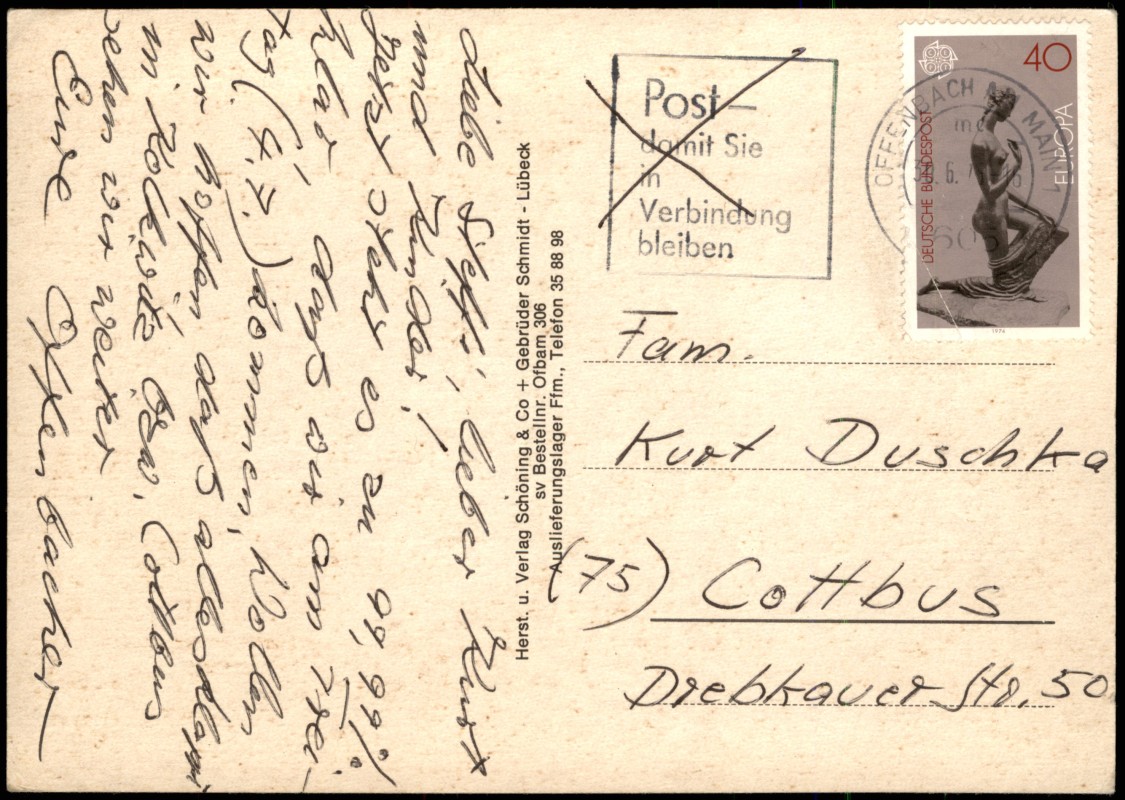 Liebe Steffi, lieber Kurt
und Kinder!
Jetzt steht es zu 99,99%
klar, daß wir am Frei-
tag (4.7.) kommen, wollen
wir hoffen daß alles klar
in Kolkwitz bzw. Cottbus
sehen wir weiter
Eure Offenbacher
Herst. u. Verlag Schöning & Co + Gebrüder Schmidt - Lübeck
sv Bestellnr. Ofbam 306
Auslieferungslager Ffm., Telefon 35 88 98
Post-
damit Sie
in
Verbindung
bleiben
OFFENBACH AM MAIN 1
40
DEUTSCHE BUNDESPOST
EUROPA
1974
Fam.
Kurt Duschka
(75) Cottbus
Drebkauer Str. 50